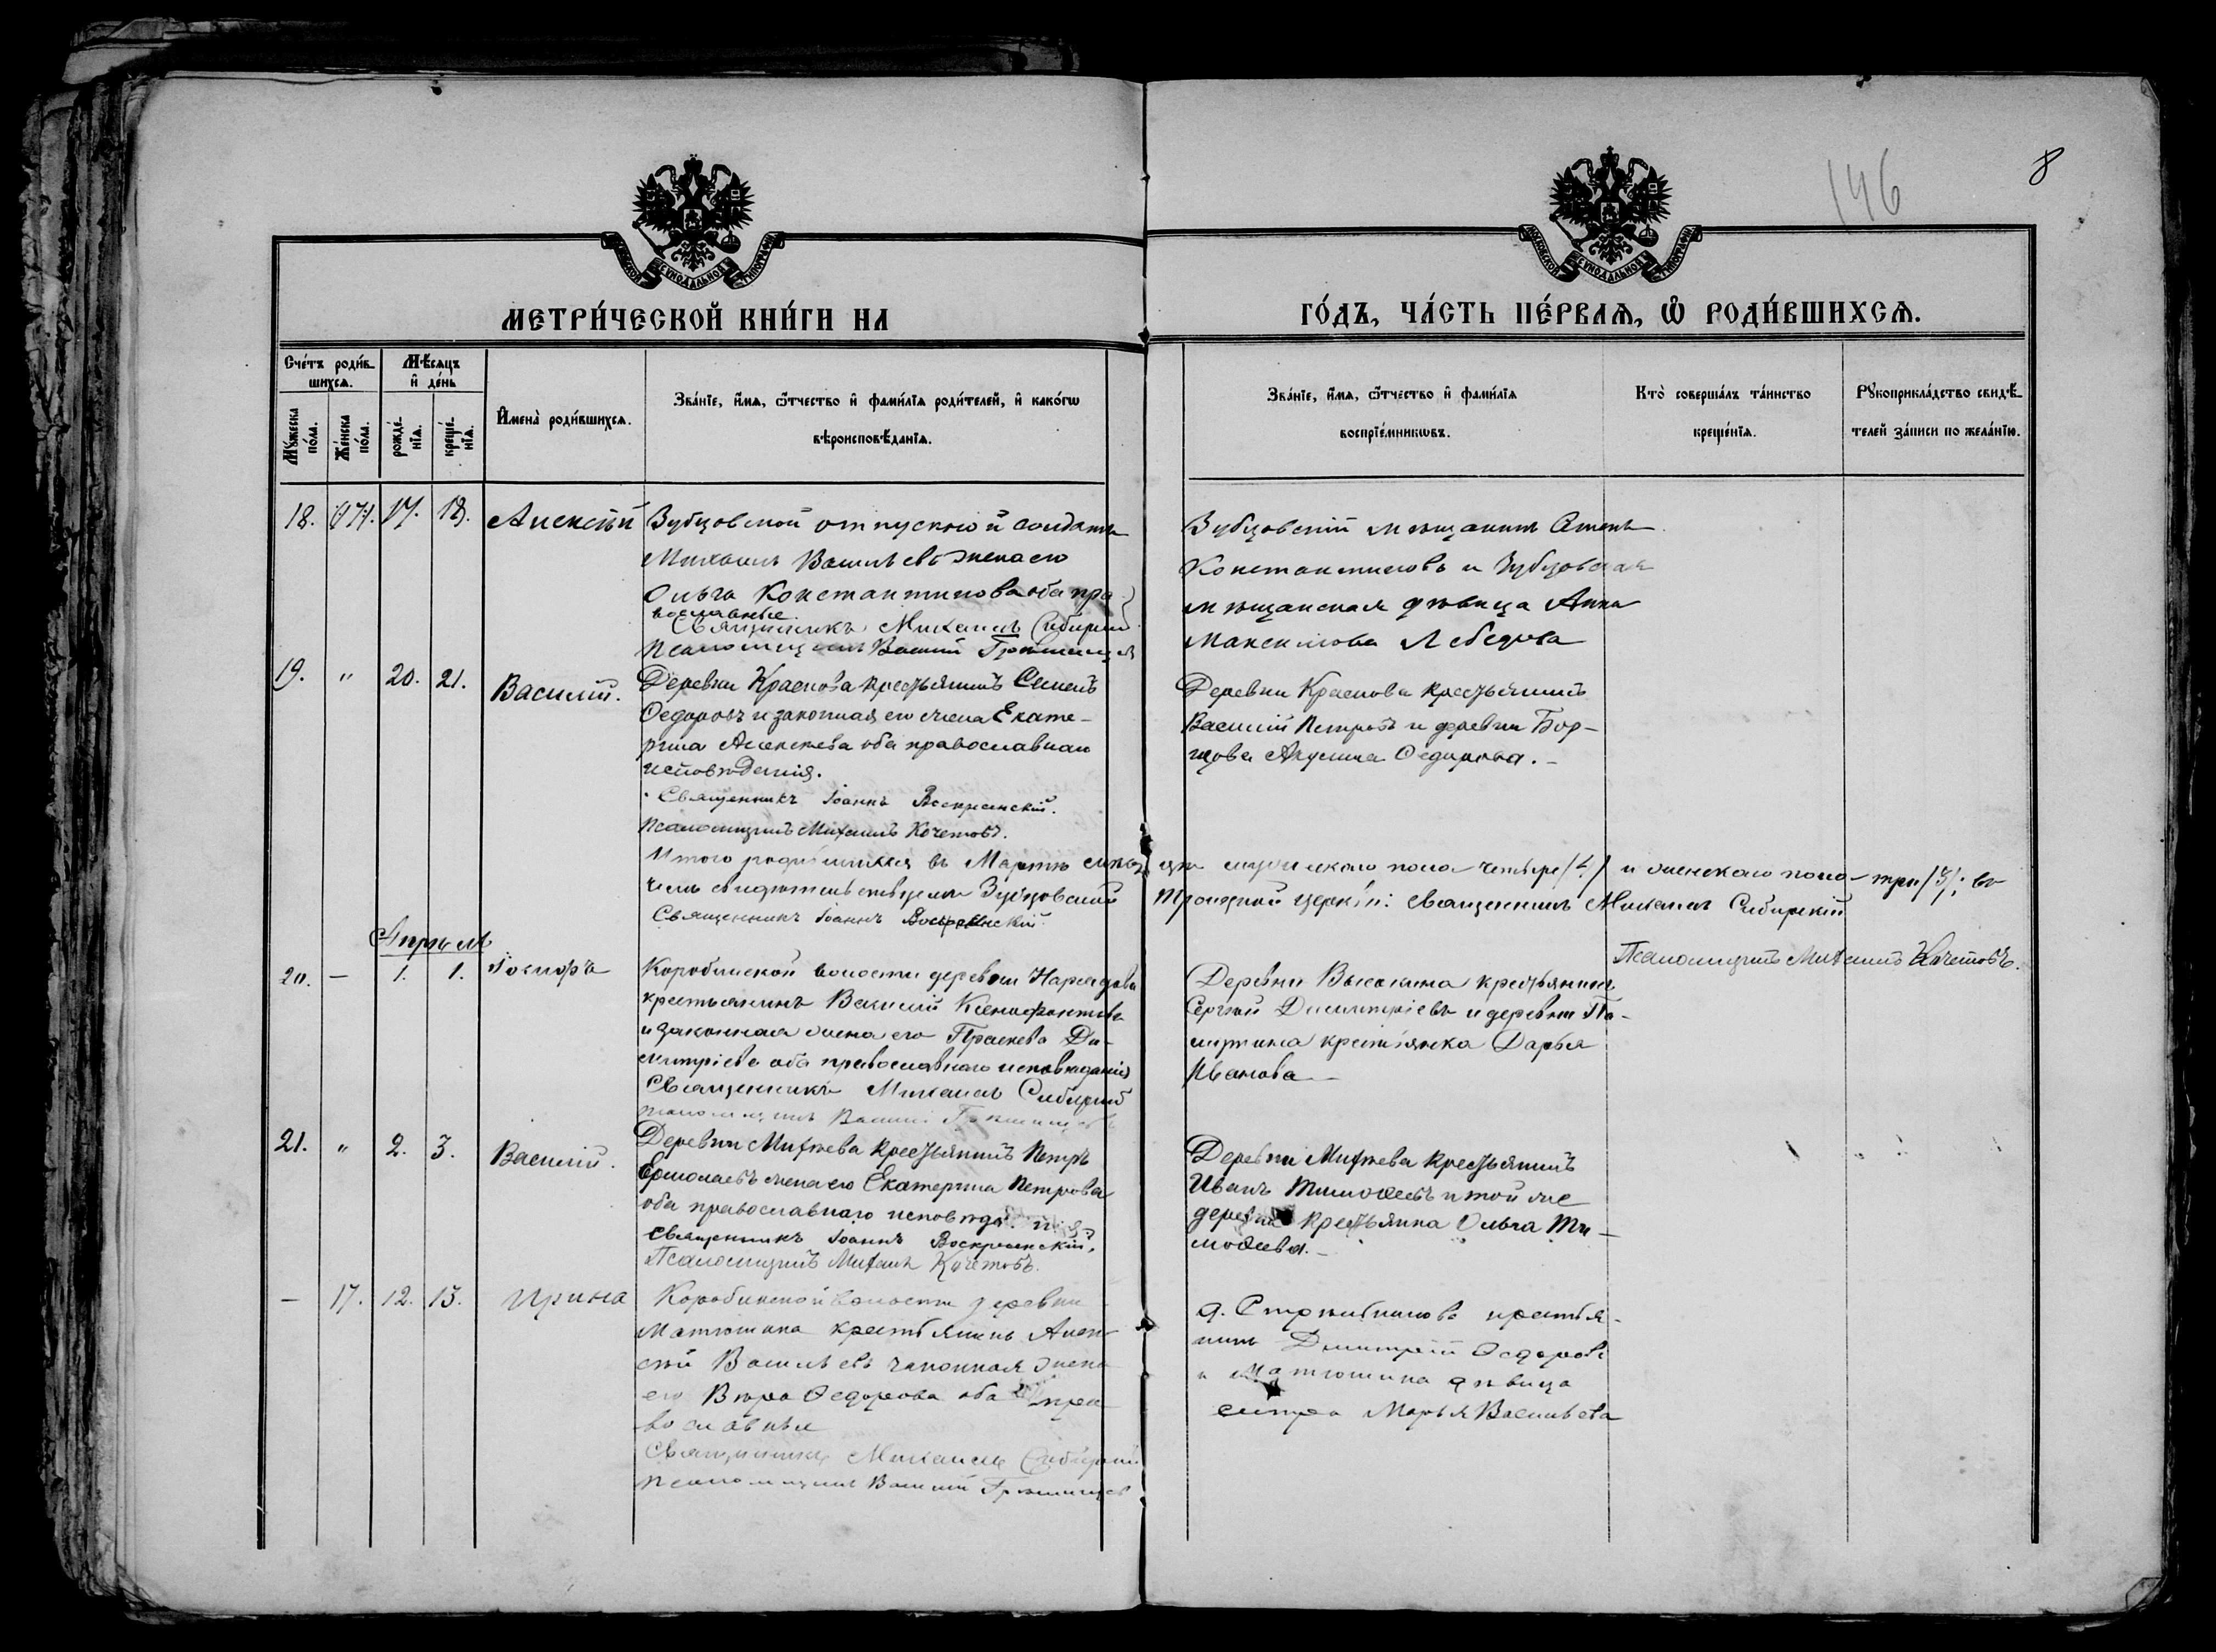 146
8
МОСКОВСКОЙ СѴНОДАЛЬНОЙ ТИПОГРАФІИ
МОСКОВСКОЙ СѴНОДАЛЬНОЙ ТИПОГРАФІИ
МЕТРИ́ЧЕСКОЙ КНИ́ГИ НА
ГО́ДЪ, ЧА́СТЬ ПЕ́РВАѦ, Ѡ РОДИ́ВШИХСѦ.
Сче́тъ роди́в-
шихсѧ.
Мꙋ́жеска по́ла.
Же́нска по́ла.
Мѣ́сѧцъ
и҆ де́нь
рожде́-
нїѧ.
креще́-
нїѧ.
И҆мена̀ роди́вшихсѧ.
Зва́нїе, и҆́мѧ, ѻ҆́тчество и҆ фами́лїѧ роди́телей, и҆ како́гѡ
вѣроисповѣ́данїѧ.
Зва́нїе, и҆́мѧ, ѻ҆́тчество и҆ фами́лїѧ
воспрїе́мникѡвъ.
Кто̀ соверша́лъ та́инство
креще́нїѧ.
Рꙋкоприкла́дство свидѣ́-
телей за́писи по жела́нїю.
18. 17. 18. Алексѣй
Зубцовской отпускной солдатъ
Михаилъ Васильевъ жена его
Ольга Константинова оба пра-
вославные
Священникъ Михаилъ Сибирскій
Псаломщикъ Василій
Зубцовскій мѣщанинъ
Константиновъ и Зубцовская
мѣщанская дѣвица Анна
Максимова Лебедева
19. " 20. 21. Василій.
Деревни Краснова крестьянинъ Семенъ
Ѳедоровъ и законная его жена Екате-
рина Алексѣева оба православнаго
исповѣданія.
Священникъ Іоаннъ Воскресенскій.
Псаломщикъ Михаилъ Кочетовъ.
Деревни Краснова крестьянинъ
Василій Петровъ и деревни Бор-
щова Акулина Ѳедорова.
Итого родившихся въ Мартѣ мѣсяцѣ мужескаго пола четыре (4) и женскаго пола три (3); въ
чемъ свидѣтельствуемъ Зубцовской Троицкой церкви: священникъ Михаилъ Сибирскій
Священникъ Іоаннъ Воскресенскій.
Псаломщикъ Михаилъ Кочетовъ.
Апрѣль
20. — 1. 1. Іосифъ
Коробинской волости деревни
крестьянинъ Василій Ксенофонтовъ
и законная жена его Праскева Ди-
митріева оба православнаго исповѣданія
Священникъ Михаилъ Сибирскій
Псаломщикъ Василій
Деревни Высокина крестьянинъ
Сергѣй Димитріевъ и деревни
крестьянка Дарья
Иванова
21. " 2. 3. Василій.
Деревни Михѣева крестьянинъ Петръ
Ермолаевъ жена его Екатерина Петрова
оба православнаго исповѣд.
Священникъ Іоаннъ Воскресенскій.
Псаломщикъ Михаилъ Кочетовъ.
Деревни Михѣева крестьянинъ
Иванъ Тимоѳеевъ и той же
деревни крестьянка Ольга Ти-
моѳеева.
— 17. 12. 15. Ирина
Коробинской волости деревни
Матюшина крестьянинъ Алек-
сѣй Васильевъ законная жена
его Вѣра Ѳедорова оба пра-
вославные
Священникъ Михаилъ Сибирскій
Псаломщикъ Василій
д. крестья-
нинъ Димитрій Ѳедоровъ
и Матюшина дѣвица
сестра Марья Васильева